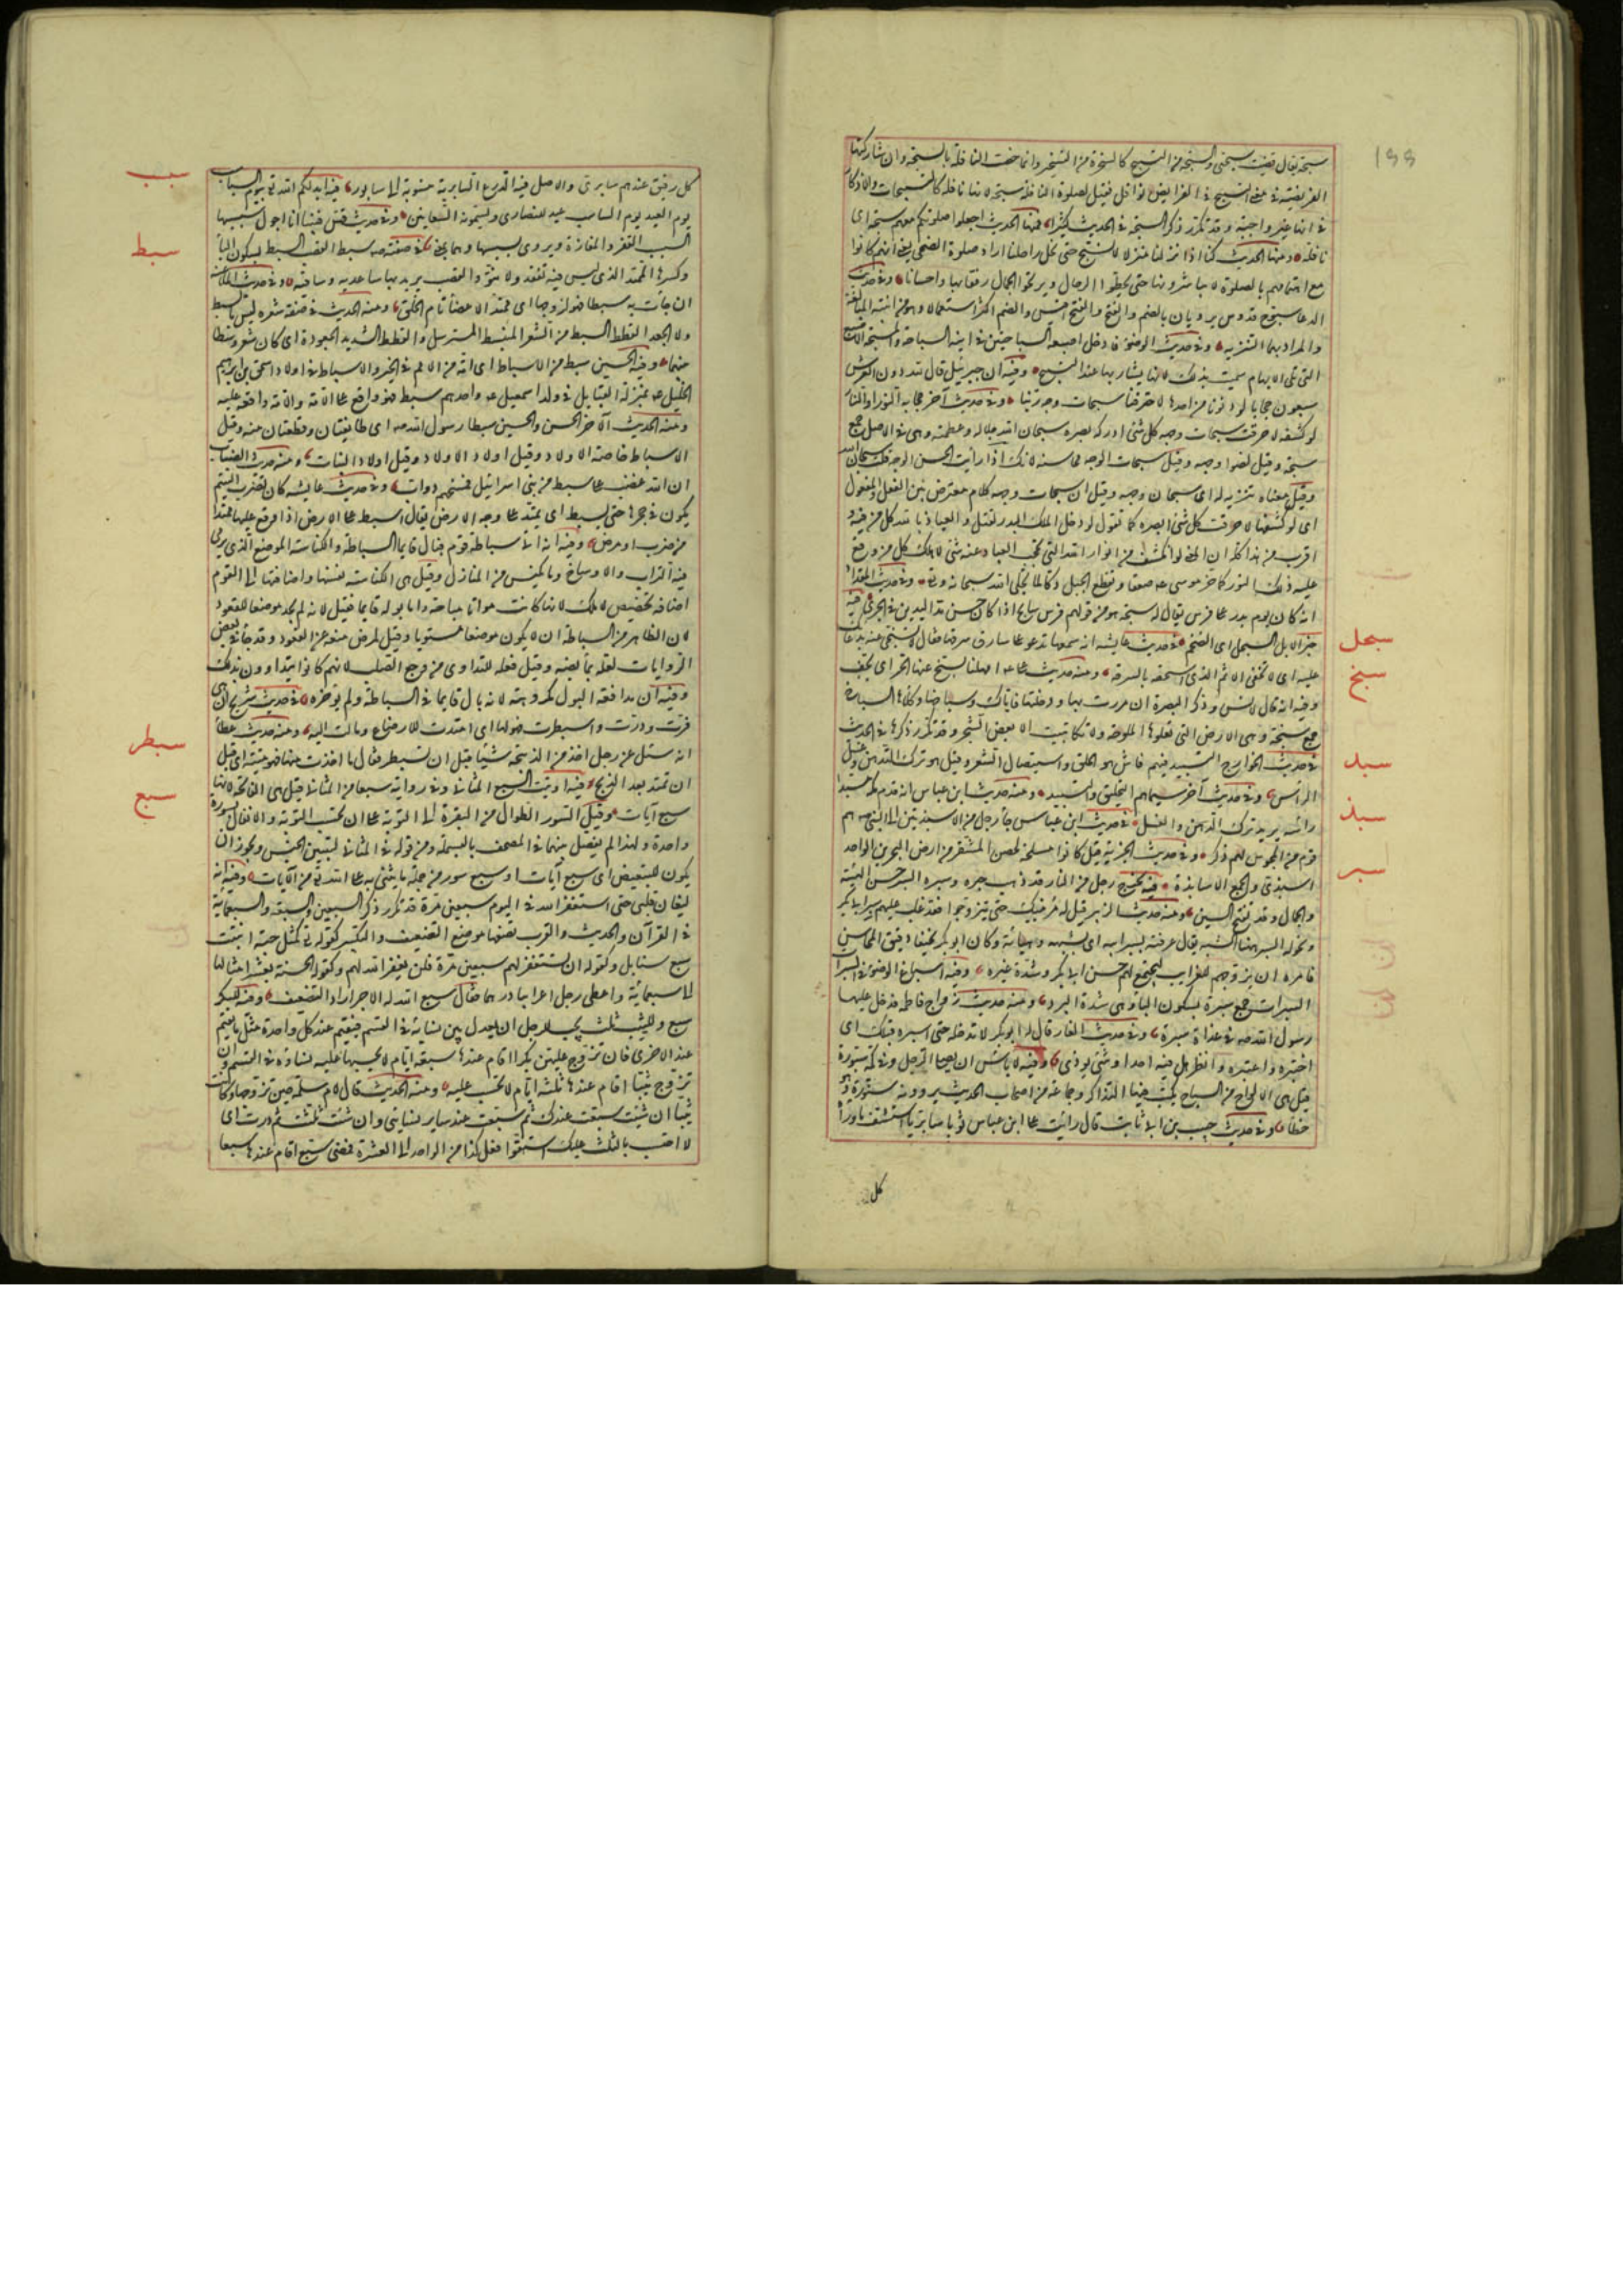 ١٥٥
سبحته يقال قضيت سبحتي والسبحة من التسبيح كالسخرة من التسخير وانما خصت النافلة بالسبحة وان شاركتها
الفريضة في معنى التسبيح
في انها غير واجبة وقد تكرر ذكر السبحة في الحديث كثيرا فمنها الحديث اجعلوا صلوتكم معهم سبحة اي
نافلة ومنها الحديث كنا اذا نزلنا منزلا لا نسبح حتى تحل رحالنا اراد صلوة الضحى يعني انهم كانوا
مع اهتمامهم بالصلوة لا يباشرونها حتى يحطوا الرحال ويريحوا الجمال رفقا بها واحسانا وفي حديث
الدعا سبوح قدوس يرويان بالضم والفتح والفتح اقيس والضم اكثر استعمالا وهو من ابنية المبالغة
والمراد بهما التنزيه وفي حديث الوضوء فادخل اصبعيه السباحتين في اذنيه السباحة والمسبحة الاصبع
التي تلي الابهام سميت بذلك لانها يشار بها عند التسبيح وفيه ان جبرئيل قال لله دون العرش
سبعون حجابا لو دنونا من احدها لاحرقتنا سبحات وجه ربنا وفي حديث آخر حجابه النور او النار
لو كشفه لاحرقت سبحات وجهه كل شئ ادركه بصره سبحات الله جلاله وعظمته وهي في الاصل جمع
سبحة وقيل اضواء وجهه وقيل سبحات الوجه محاسنه لانك اذا رأيت الحسن الوجه قلت سبحان الله
وقيل معناه تنزيه له اي سبحان وجهه وقيل ان سبحات وجهه كلام معترض بين الفعل والمفعول
اي لو كشفها لاحرقت كل شئ ابصره كما تقول لو دخل الملك البلد لقتل والعياذ بالله كل من فيه و
اقرب من هذا كله ان المعنى لو انكشف من انوار الله التي تحجب العباد عنه شئ لاهلك كل من وقع
عليه ذلك النور كما خر موسى عم صعقا وتقطع الجبل دكا لما تجلى الله سبحانه وتع وفي حديث المقداد
انه كان يوم بدر على فرس يقال له سبحة هو من قولهم فرس سابح اذا كان حسن مد اليدين في الجري فيه
سبحل
خير الابل السبحل اي الضخم في حديث عايشة انه سمعها تدعو على سارق سرقها فقال لا تسبخي عنه بدعائك
سبخ
عليه اي لا تخففي عنه الاثم الذي استحقه بالسرقة ومنه حديث علي عم امهلنا يسبخ عنا الحر اي يخف
وفيه انه قال لانس وذكر البصرة ان مررت بها ودخلتها فاياك وسباخها وكلاها السباخ
جمع سبخة وهي الارض التي تعلوها الملوحة ولا تكاد تنبت الا بعض الشجر وقد تكرر ذكرها في الحديث
سبد
في حديث الخوارج التسبيد فيهم فاش هو الحلق واستيصال الشعر وقيل هو ترك التدهن وغسل
الرأس وفي حديث آخر سيماهم التحليق والتسبيد ومنه حديث ابن عباس انه قدم مكة مسبدا
سبذ
رأسه يريد ترك الدهن والغسل في حديث ابن عباس جاء رجل من الاسبذيين الى النبي صم هم
قوم من المجوس لهم ذكر في حديث الجزية قيل كانوا مسلحة لحصن المشقر من ارض البحرين الواحد
سبر
اسبذي والجمع الاسابذة فيه يخرج رجل من النار قد ذهب حبره وسبره السبر حسن الهيئة
والجمال وقد تفتح السين ومنه حديث الزبير قيل له مر بنيك حتى يتزوجوا فقد غلب عليهم سبر ابي بكر
ونحوله السبر ههنا الشبه يقال عرفته بسبر ابيه اي بشبهه وهيأته وكان ابو بكر نحيفا دقيق المحاسن
فامره ان يزوجهم للغرايب ليجتمع لهم حسن ابي بكر وشدة غيره وفيه اسباغ الوضوء في السبرات
السبرات جمع سبرة بسكون الباء وهي شدة البرد ومنه حديث زواج فاطمة فدخل عليها
رسول الله صم في غداة سبرة وفي حديث الغار قال له ابو بكر لا تدخله حتى اسبره قبلك اي
اختبره واعتبره وانظر هل فيه احد او شئ يوذي وفيه لا باس ان يصلي الرجل وفي كمه سبورة
قيل هي الالواح من الساج يكتب فيها التذاكر وجماعة من اصحاب الحديث يروونه ستورة وهو
خطأ وفي حديث حبيب بن ابي ثابت قال رأيت على ابن عباس ثوبا سابريا استشف ما وراءه
كل
كل رقيق عندهم سابري والاصل فيه الدروع السابرية منسوبة الى سابور فيه ابدلكم الله تع بيوم السباسب
سبسب
يوم العيد يوم السباسب عيد للنصارى ويسمونه السعانين وفي حديث قس فبينا انا اجول سبسبها
السبسب القفر والمفازة ويروى بسبسبها وهما بمعنى في صفته صم سبط القصب السبط بسكون الباء
سبط
وكسرها الممتد الذي ليس فيه تعقد ولا نتو والقصب يريد بها ساعديه وساقيه وفي حديث الملاعنة
ان جاءت به سبطا فهو لزوجها اي ممتد الاعضاء تام الخلق ومنه الحديث في صفة شعره ليس بالسبط
ولا الجعد القطط السبط من الشعر المنبسط المسترسل والقطط الشديد الجعودة اي كان شعره وسطا
بينهما وفيه الحسين سبط من الاسباط اي امة من الامم في الخير والاسباط في اولاد اسحق بن ابرهيم
الخليل عم بمنزلة القبايل في ولد اسمعيل عم واحدهم سبط فهو واقع على الامة والامة واقعة عليه
ومنه الحديث الآخر الحسن والحسين سبطا رسول الله صم اي طايفتان وقطعتان منه وقيل
الاسباط خاصة الاولاد وقيل اولاد الاولاد وقيل اولاد البنات ومنه حديث الضباب
ان الله غضب على سبط من بني اسرائيل فمسخهم دواب وفي حديث عايشه كان تضرب اليتيم
يكون في حجرها حتى يسبط اي يمتد على وجه الارض يقال اسبط على الارض اذا وقع عليها ممتدا
من ضرب او مرض وفيه انه اتى سباطة قوم فبال قايما السباطة والكناسة الموضع الذي يرمى
فيه التراب والاوساخ وما يكنس من المنازل وقيل هي الكناسة نفسها واضافتها الى القوم
اضافة تخصيص لا ملك لانها كانت مواتا مباحة واما بوله قايما فقيل لانه لم يجد موضعا للقعود
لان الظاهر من السباطة ان لا يكون موضعها مستويا وقيل لمرض منعه عن القعود وقد جاء في بعض
الروايات لعلة بمأبضيه وقيل فعله للتداوي من وجع الصلب لانهم كانوا يتداوون بذلك
وفيه ان مدافعة البول مكروهة لانه بال قايما في السباطة ولم يؤخره في حديث شريح ان هي
سبطر
قرت ودرت واسبطرت فهو لها اي امتدت للارضاع ومالت اليه ومنه حديث عطا
انه سئل عن رجل اخذ من الذبيحة شيئا قبل ان تسبطر فقال ما اخذت منها فهو ميتة اي قبل
ان تمتد بعد الذبح فيه اوتيت السبع المثاني وفي رواية سبعا من المثاني قيل هي الفاتحة لانها
سبع
سبع آيات وقيل السور الطوال من البقرة الى التوبة على ان تحسب التوبة والانفال سورة
واحدة ولهذا لم يفصل بينهما في المصحف بالبسملة ومن قوله في المثاني لتبيين الجنس ويجوز ان
يكون للتبعيض اي سبع آيات او سبع سور من جملة ما يثنى به على الله تع من الآيات وفيه انه
ليغان على قلبي حتى استغفر الله في اليوم سبعين مرة قد تكرر ذكر السبعين والسبعة والسبعماية
في القرآن والحديث والعرب تضعها موضع التضعيف والتكثير كقوله تع كمثل حبة انبتت
سبع سنابل وكقوله ان تستغفر لهم سبعين مرة فلن يغفر الله لهم وكقوله الحسنة بعشر امثالها
الى سبعماية واعطى رجل اعرابيا درهما فقال سبع الله له الاجر اراد التضعيف وفيه للبكر
سبع وللثيب ثلث يجب على الرجل ان يعدل بين نسائه في القسم فيقيم عند كل واحدة مثل ما يقيم
عند الاخرى فان تزوج عليهن بكرا اقام عندها سبعة ايام لا يحسبها عليه نساؤه في القسم وان
تزوج ثيبا اقام عندها ثلثة ايام لا تحسب عليه ومنه الحديث قال لام سلمة حين تزوجها وكانت
ثيبا ان شئت سبعت عندك ثم سبعت عند ساير نسائي وان شئت ثلثت ثم درت اي
لا احتسب بالثلث عليك اشتقوا فعل كذا من الواحد الى العشرة فمعنى سبع اقام عندها سبعا